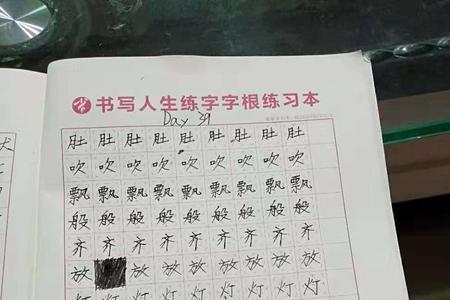 书写人生练字字根练习本
Day 39
肚 肚 肚 肚 肚 肚 肚 肚 肚
吹 吹 吹 吹 吹 吹 吹 吹 吹
飘 飘 飘 飘 飘 飘 飘 飘 飘
般 般 般 般 般 般 般 般 般
齐 齐 齐 齐 齐 齐 齐 齐 齐
放 放 放 放 放 放 放 放
灯 灯 灯 灯 灯 灯 灯 灯 灯